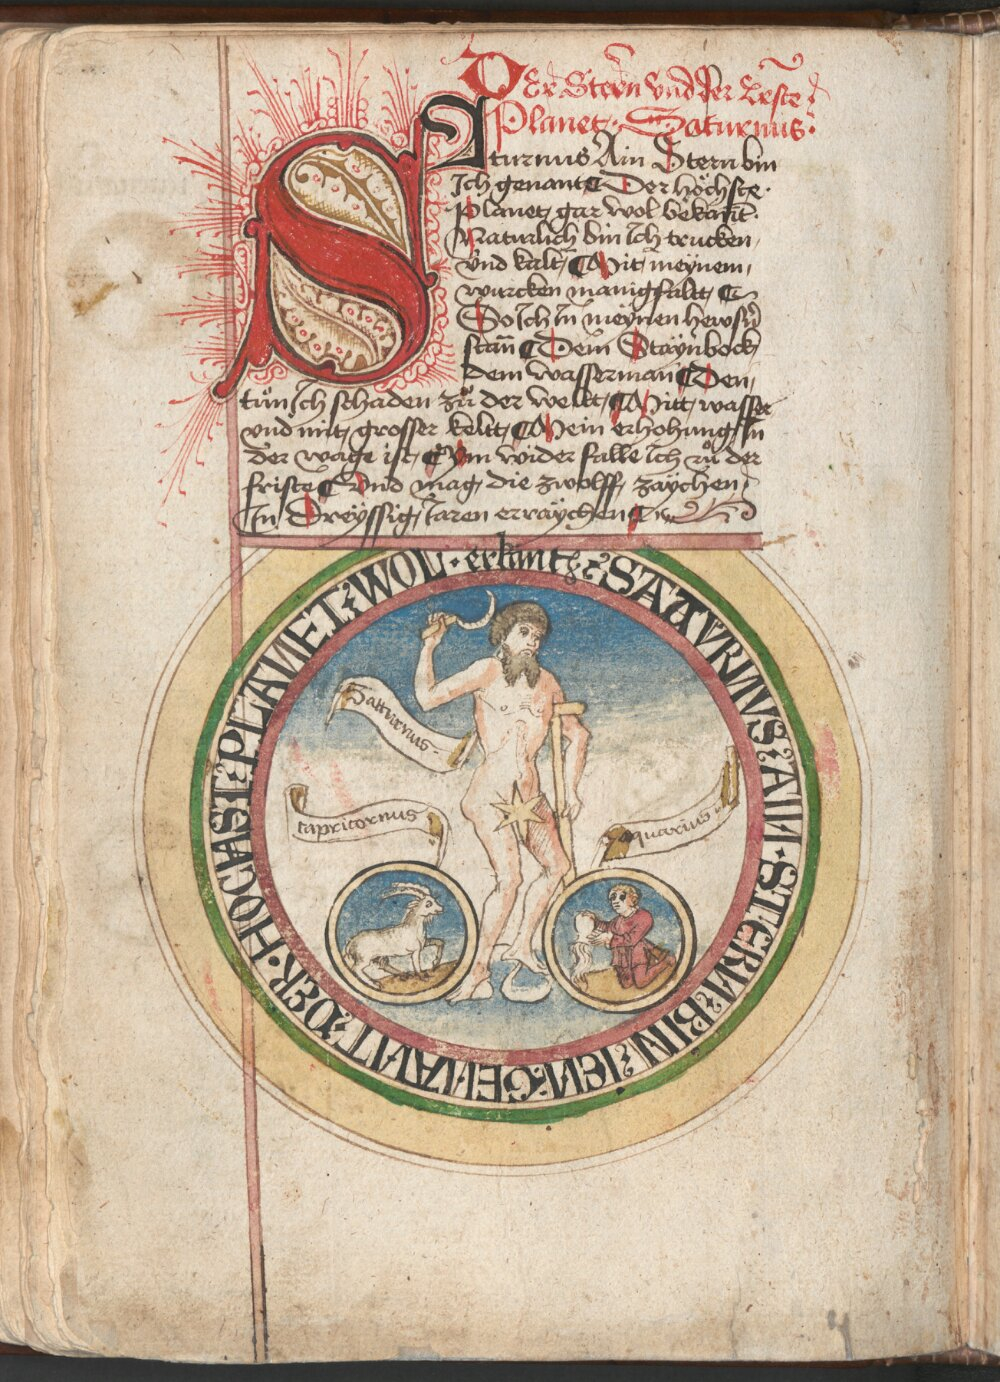 Der Stern vnd der Erste
Planet Saturnus
Saturnus Ain Stern bin
Ich genant Der höchste
Planet gar wol bekant
Naturlich bin Ich trucken
vnd kalt Mit meynem
wurcken manigfalt
So Ich in meynen hewsern
stan Dem Staynbock
dem wasserman Den
tun Ich schaden zu der welt Mitt wasser
vnd mit grosser keltt Mein erhohung in
der wage ist Im wider falle ich zu der
friste Vnd mag die zwolff zaychen
In Dreyssig Jaren erraychen
SAATVRNVS AIN STERN BIN ICH GENANT DER HOCHST PLANET WOL erkanth
Satturnus
Capricornus
Aquarius